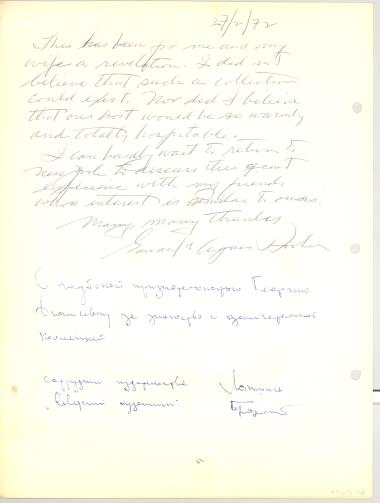 27/2/72
This has been for me and my
wife a revelation. I did not
believe that such a collection
could exist. Nor did I believe
that our host would be so warmly
and totally hospitable.
I can hardly wait to return to
New York to discuss this great
experience with my friends
whose interest is similar to ours.
Many, many thanks
Agnes
С глубокой признательностью Георгию
за знакомство с замечательной
коллекцией
сотрудники издательства
"Советский художник"